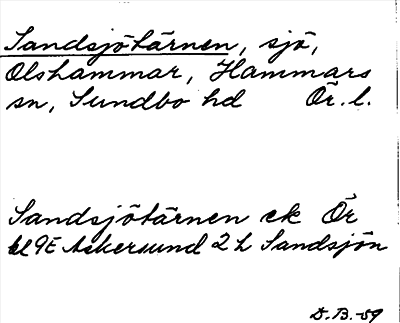 Sandsjötärnen, sjö,
Olshammar, Hammars
sn, Sundbo hd Ör. l.
Sandsjötärnen ek Ör
bl 9E Askersund 2 h Sandsjön
D.B.-59